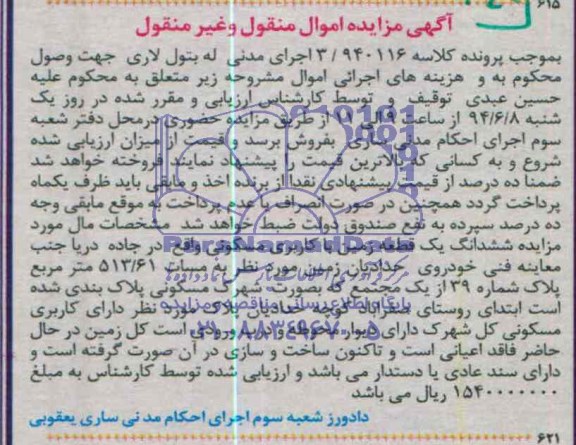 ۶۱۵
آگهی مزایده اموال منقول وغیر منقول
بموجب پرونده کلاسه ۹۴۰۱۱۶ / ۳ اجرای مدنی له بتول لاری جهت وصول
محکوم به و هزینه های اجرائی اموال مشروحه زیر متعلق به محکوم علیه
حسین عبدی توقیف و توسط کارشناس ارزیابی و مقرر شده در روز یک
شنبه ۹۴/۶/۸ از ساعت ۹ الی ۱۱ از طریق مزایده حضوری درمحل دفتر شعبه
سوم اجرای احکام مدنی ساری بفروش برسد و قیمت از میزان ارزیابی شده
شروع و به کسانی که بالاترین قیمت را پیشنهاد نمایند فروخته خواهد شد
ضمنا ده درصد از قیمت پیشنهادی نقدا از برنده اخذ و مابقی باید ظرف یکماه
پرداخت گردد همچنین در صورت انصراف یا عدم پرداخت به موقع مابقی وجه
ده درصد سپرده به نفع صندوق دولت ضبط خواهد شد مشخصات مال مورد
مزایده ششدانگ یک قطعه زمین با کاربری مسکونی واقع در جاده دریا جنب
معاینه فنی خودروی خدادادیان زمین مورد نظر به مساحت ۵۱۳/۶۱ متر مربع
پلاک شماره ۳۹ از یک مجتمع که بصورت شهرک مسکونی پلاک بندی شده
است ابتدای روستای صفرآباد کوچه خدادیان پلاک مورد نظر دارای کاربری
مسکونی کل شهرک دارای دیوار محوطه و درب ورودی است کل زمین در حال
حاضر فاقد اعیانی است و تاکنون ساخت و سازی در آن صورت گرفته است و
دارای سند عادی یا دستدار می باشد و ارزیابی شده توسط کارشناس به مبلغ
۱۵۴۰۰۰۰۰۰۰ ریال می باشد
دادورز شعبه سوم اجرای احکام مد نی ساری یعقوبی
۶۲۱
ParsNamadData
پایگاه اطلاع رسانی مناقصه و مزایده
۰۲۱-۸۸۳۴۹۶۷۰-۵